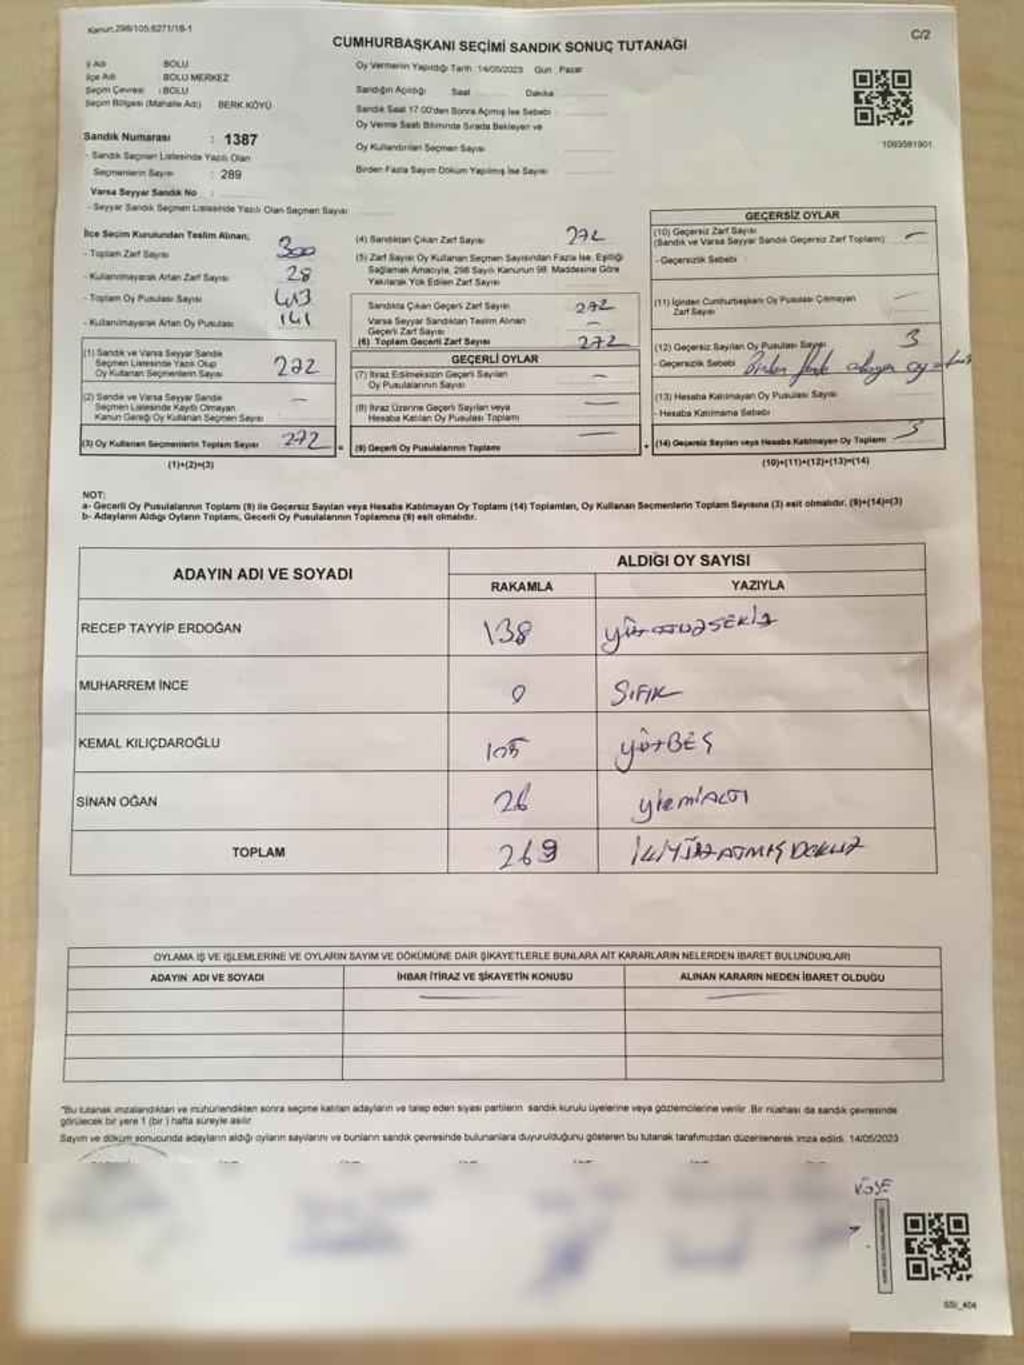 Kanun: 298/105;6271/18-1
C/2
CUMHURBAŞKANI SEÇİMİ SANDIK SONUÇ TUTANAĞI
İl Adı : BOLU
İlçe Adı : BOLU MERKEZ
Seçim Çevresi : BOLU
Seçim Bölgesi (Mahalle Adı) BERK KÖYÜ
Sandık Numarası : 1387
- Sandık Seçmen Listesinde Yazılı Olan
Seçmenlerin Sayısı : 289
Varsa Seyyar Sandık No :
- Seyyar Sandık Seçmen Listesinde Yazılı Olan Seçmen Sayısı
Oy Vermenin Yapıldığı Tarih : 14/05/2023 Gün : Pazar
Sandığın Açıldığı Saat Dakika
Sandık Saat 17.00'den Sonra Açılmış İse Sebebi
Oy Verme Saati Bitiminde Sırada Bekleyen ve
Oy Kullandırılan Seçmen Sayısı
Birden Fazla Sayım Döküm Yapılmış İse Sayısı
1093591901
İlçe Seçim Kurulundan Teslim Alınan;
- Toplam Zarf Sayısı 300
- Kullanılmayarak Artan Zarf Sayısı 28
- Toplam Oy Pusulası Sayısı 413
- Kullanılmayarak Artan Oy Pusulası 141
(1) Sandık ve Varsa Seyyar Sandık
Seçmen Listesinde Yazılı Olup
Oy Kullanan Seçmenlerin Sayısı 272
(2) Sandık ve Varsa Seyyar Sandık
Seçmen Listesinde Kayıtlı Olmayan
Kanun Gereği Oy Kullanan Seçmen Sayısı —
(3) Oy Kullanan Seçmenlerin Toplam Sayısı 272 =
(1)+(2)=(3)
(4) Sandıktan Çıkan Zarf Sayısı 272
(5) Zarf Sayısı Oy Kullanan Seçmen Sayısından Fazla İse, Eşitliği
Sağlamak Amacıyla, 298 Sayılı Kanunun 98. Maddesine Göre
Yakılarak Yok Edilen Zarf Sayısı
Sandıkta Çıkan Geçerli Zarf Sayısı 272
Varsa Seyyar Sandıktan Teslim Alınan
Geçerli Zarf Sayısı —
(6) Toplam Geçerli Zarf Sayısı 272
GEÇERLİ OYLAR
(7) İtiraz Edilmeksizin Geçerli Sayılan
Oy Pusulalarının Sayısı —
(8) İtiraz Üzerine Geçerli Sayılan veya
Hesaba Katılan Oy Pusulası Toplamı —
(9) Geçerli Oy Pusulalarının Toplamı — +
GEÇERSİZ OYLAR
(10) Geçersiz Zarf Sayısı
(Sandık ve Varsa Seyyar Sandık Geçersiz Zarf Toplamı) —
- Geçersizlik Sebebi
(11) İçinden Cumhurbaşkanı Oy Pusulası Çıkmayan
Zarf Sayısı —
(12) Geçersiz Sayılan Oy Pusulası Sayısı 3
- Geçersizlik Sebebi Birden fazla
(13) Hesaba Katılmayan Oy Pusulası Sayısı
- Hesaba Katılmama Sebebi
(14) Geçersiz Sayılan veya Hesaba Katılmayan Oy Toplamı 3
(10)+(11)+(12)+(13)=(14)
NOT:
a- Geçerli Oy Pusulalarının Toplamı (9) ile Geçersiz Sayılan veya Hesaba Katılmayan Oy Toplamı (14) Toplamları, Oy Kullanan Seçmenlerin Toplam Sayısına (3) eşit olmalıdır. (9)+(14)=(3)
b- Adayların Aldığı Oyların Toplamı, Geçerli Oy Pusulalarının Toplamına (9) eşit olmalıdır.
ADAYIN ADI VE SOYADI
ALDIĞI OY SAYISI
RAKAMLA YAZIYLA
RECEP TAYYİP ERDOĞAN 138 YÜZOTUZSEKİZ
MUHARREM İNCE 0 SIFIR
KEMAL KILIÇDAROĞLU 105 YÜZBEŞ
SİNAN OĞAN 26 YİRMİALTI
TOPLAM 269 İKİYÜZATMIŞDOKUZ
OYLAMA İŞ VE İŞLEMLERİNE VE OYLARIN SAYIM VE DÖKÜMÜNE DAİR ŞİKAYETLERLE BUNLARA AİT KARARLARIN NELERDEN İBARET BULUNDUKLARI
ADAYIN ADI VE SOYADI İHBAR İTİRAZ VE ŞİKAYETİN KONUSU ALINAN KARARIN NEDEN İBARET OLDUĞU
"Bu tutanak imzalandıktan ve mühürlendikten sonra seçime katılan adayların ve talep eden siyasi partilerin sandık kurulu üyelerine veya gözlemcilerine verilir. Bir nüshası da sandık çevresinde
görülecek bir yere 1 (bir) hafta süreyle asılır.
Sayım ve döküm sonucunda adayların aldığı oyların sayılarını ve bunların sandık çevresinde bulunanlara duyurulduğunu gösteren bu tutanak tarafımızdan düzenlenerek imza edildi. 14/05/2023